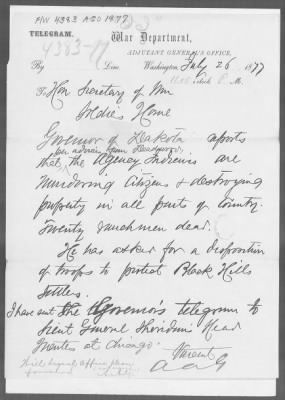 F/W 4383 AGO 1877
TELEGRAM.
War Department,
4383-77
ADJUTANT GENERAL'S OFFICE,
By Line. Washington, July 26, 1877
o'clock P. M.
To Hon Secretary of War
Soldiers Home
Governor of Dakota reports
per advices from Deadwood
that the Agency Indians are
murdering Citizens & destroying
property in all parts of Country.
Twenty ranchmen dead.
He has asked for a disposition
of troops to protect Black Hills
settlers.
I have sent the Governor's telegram to
Lieut General Sheridan's Head
Quarters at Chicago.
Vincent
AAG
Will Signal Office please